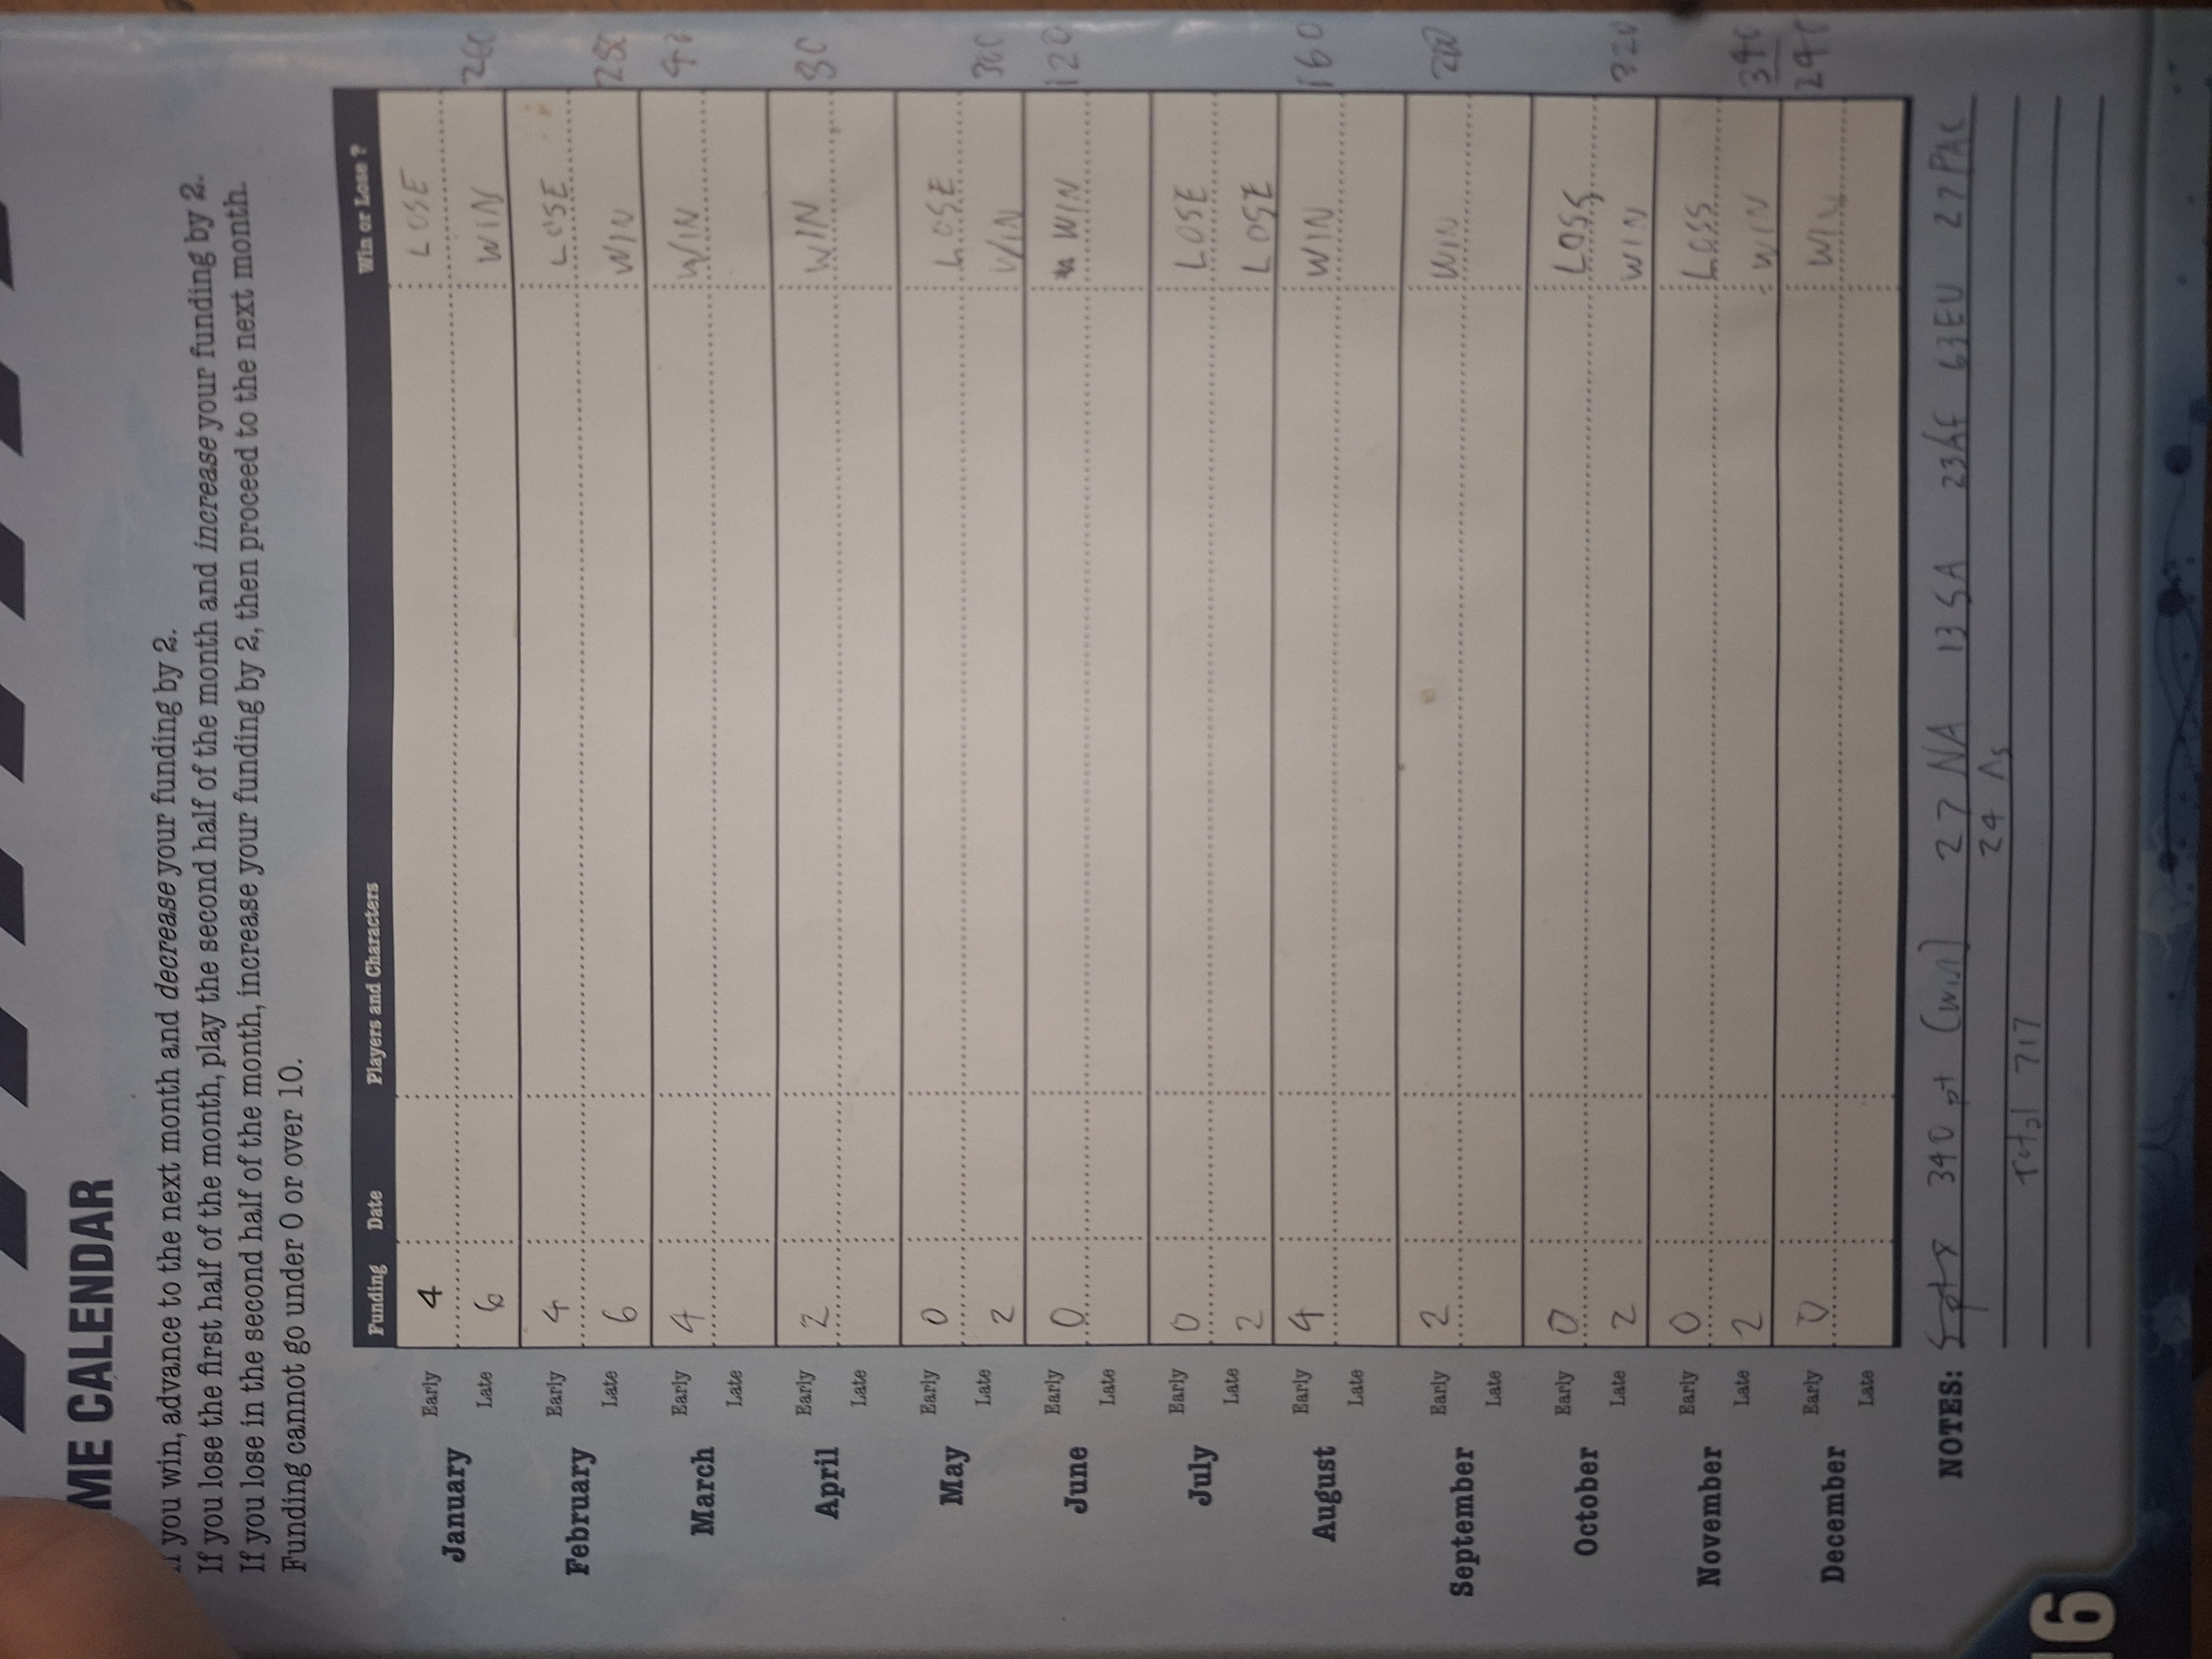 ME CALENDAR
If you win, advance to the next month and decrease your funding by 2.
If you lose the first half of the month, play the second half of the month and increase your funding by 2.
If you lose in the second half of the month, increase your funding by 2, then proceed to the next month.
Funding cannot go under 0 or over 10.
Funding Date Players and Characters Win or Lose ?
January Early 4 LOSE
Late 6 WIN
February Early 4 LOSE
Late 6 WIN
March Early 4 WIN
Late
April Early 2 WIN 80
Late
May Early 0 LOSE
Late 2 WIN 300
June Early 0 WIN 120
Late
July Early 0 LOSE
Late 2 LOSE
August Early 4 WIN 160
Late
September Early 2 WIN 200
Late
October Early 0 LOSS
Late 2 WIN 320
November Early 0 LOSS
Late 2 WIN 340
December Early 0 WIN 240
Late
NOTES: 340 pt (win) 27 NA 13 SA 23 Af 63 EU 27 PAC
24 As
Total 717
16